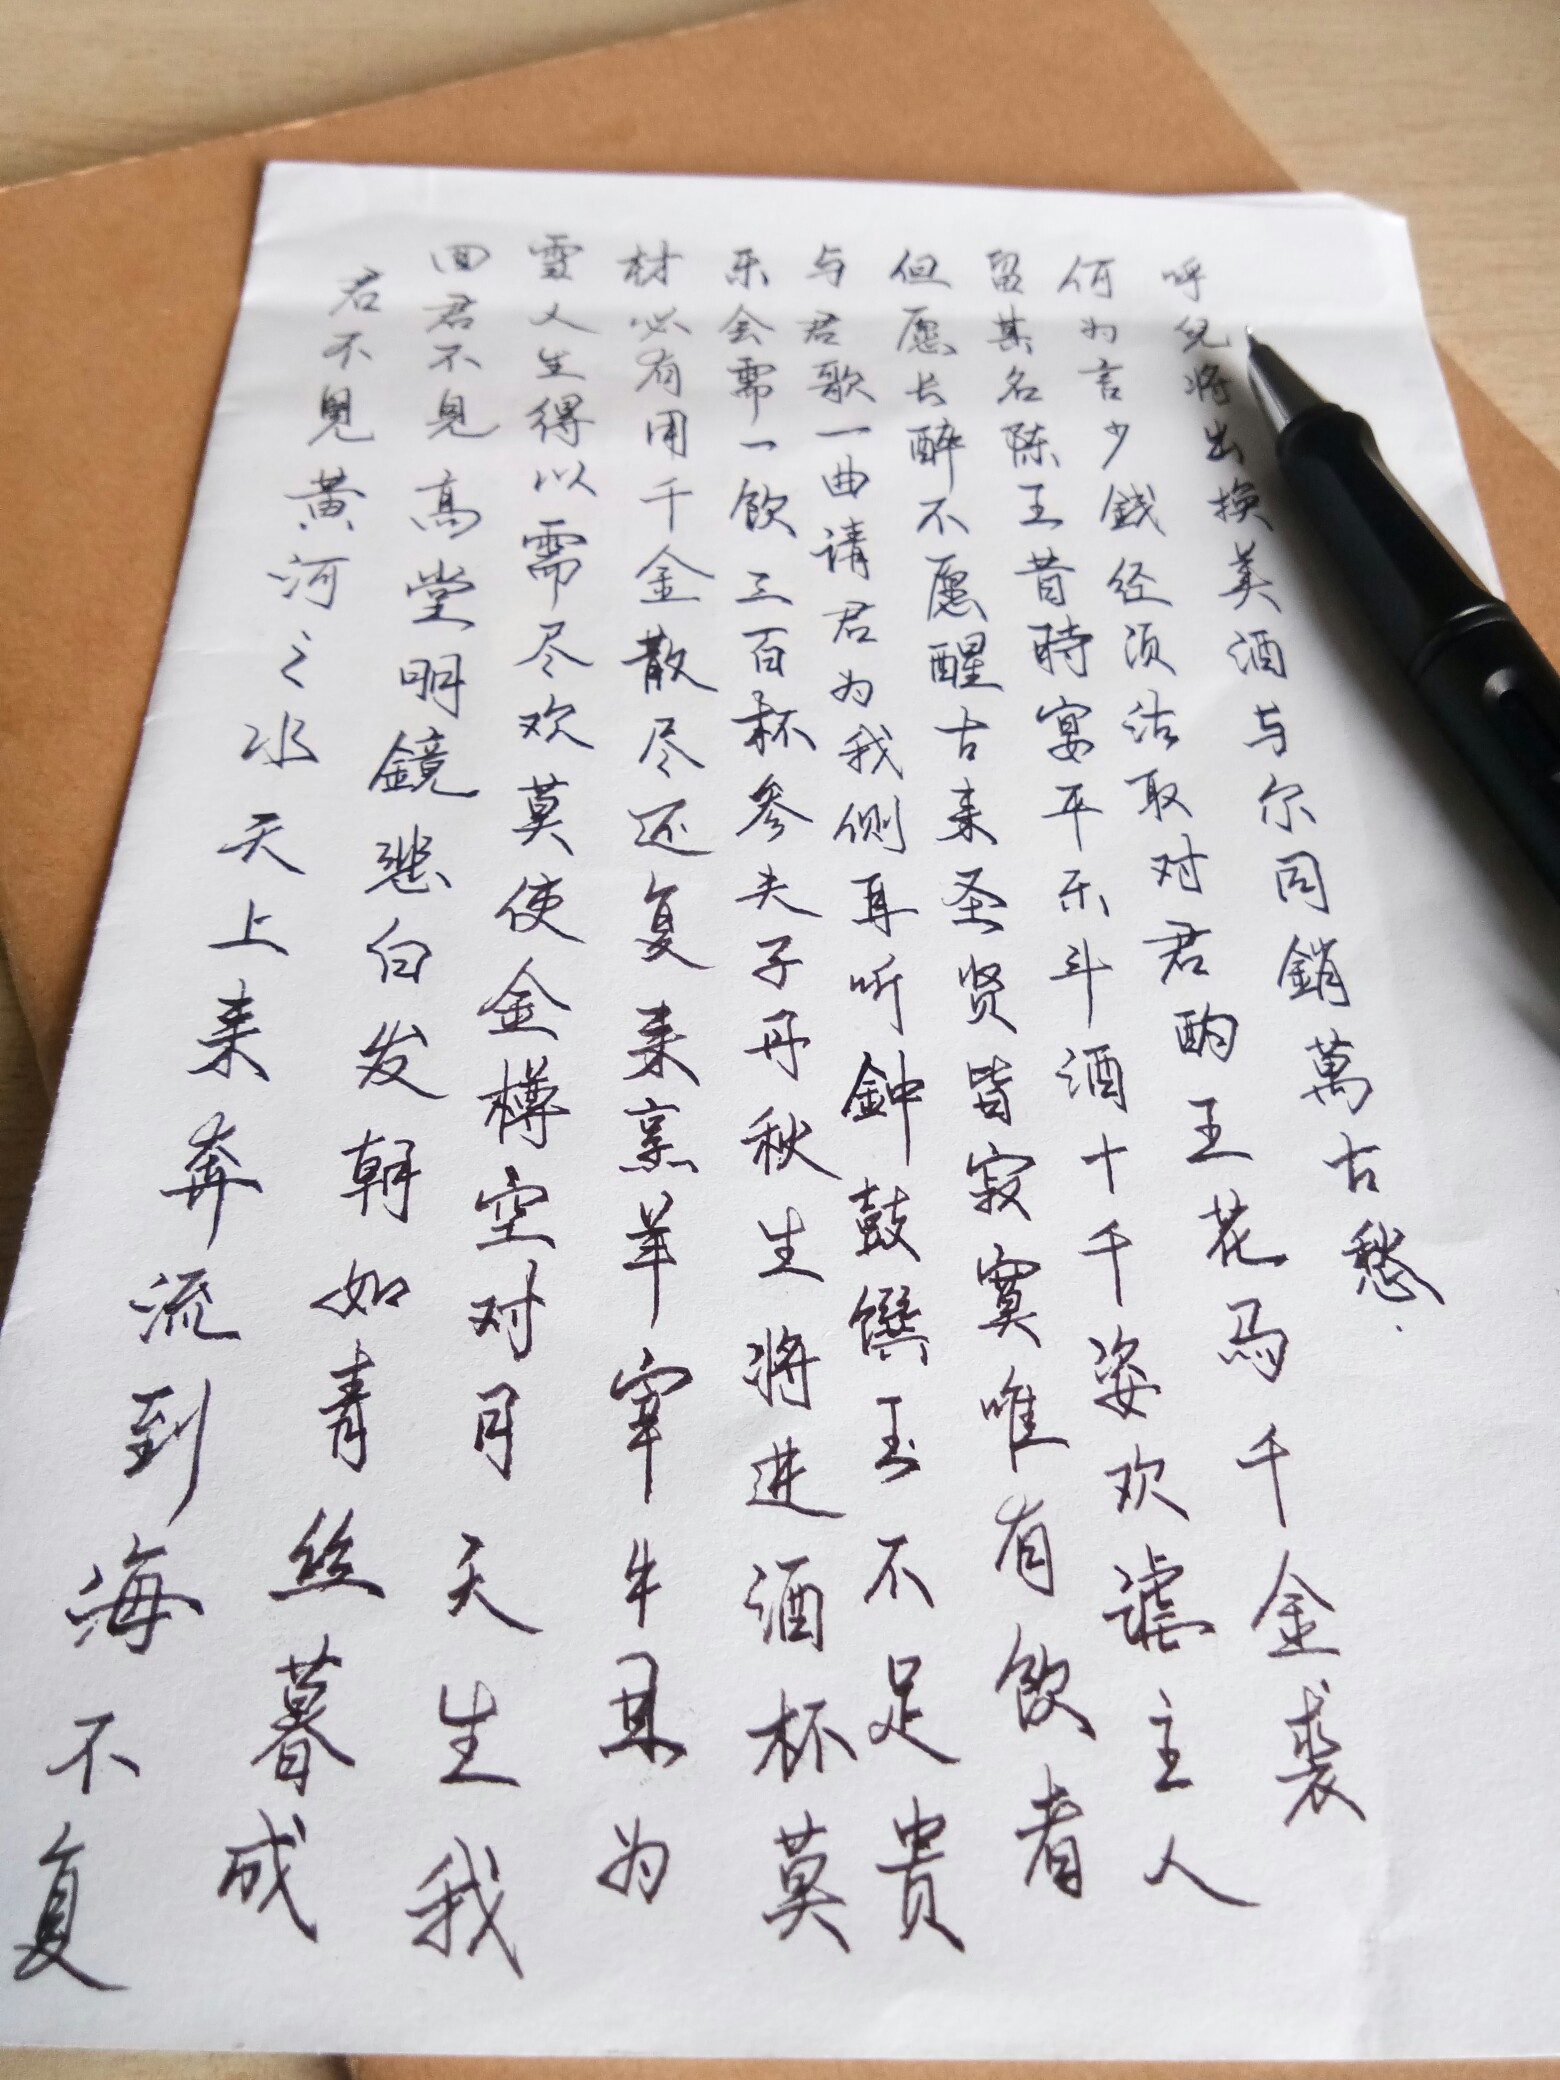 君不見黃河之水天上来奔流到海不复
回君不見高堂明鏡悲白发朝如青丝暮成
雪人生得以需尽欢莫使金樽空对月天生我
材必有用千金散尽还复来烹羊宰牛且为
乐会需一飲三百杯参夫子丹秋生将进酒杯莫
与君歌一曲请君为我侧耳听鈡鼓馔玉不足贵
但愿长醉不愿醒古来圣贤皆寂寞唯有飲者
留其名陈王昔時宴平乐斗酒十千姿欢谑主人
何为言少錢径须沽取对君酌王花马千金裘
呼兒将出换美酒与尔同銷萬古愁.